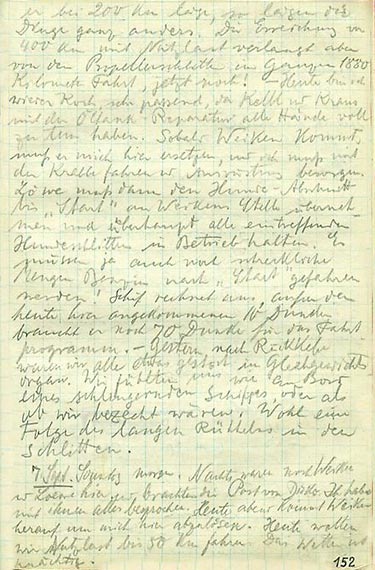 er bei 200 km läge, so lägen die
Dinge ganz anders. Die Erreichung von
400 km mit Nutzlast verlangt aber
von den Propellerschlitten im Ganzen 1850
Kilometer Fahrt, jetzt noch! – Heute bin ich
wieder Koch, sehr passend, da Kelbl und Kraus
mit der Reparatur alle Hände voll
zu tun haben. Sobald Weiken kommt,
muß er mich hier ersetzen, und ich muß mit
den fahren u. Ausrüstung besorgen.
Löwe muß dann den Hunde-Abschnitt
bis „Start" an Weikens Stelle überneh-
men und überhaupt alle eintreffenden
Hundeschlitten in Betrieb halten. Es
müssen ja auch noch schreckliche
Mengen Benzin nach „Start" gefahren
werden! Schif rechnet aus, außer den
heute hier angekommenen 10 Dunken
braucht er noch 70 Dunke für das Fahrt-
programm. – Gestern, nach Rückkehr
waren wir alle etwas gestört im Gleichgewichts-
organ. Wir fühlten uns wie an Bord
eines schlingernden Schiffes, oder als
ob wir bezecht wären. Wohl eine
Folge des langen Rüttelns in den
Schlitten.
7 Sept. Sonntag morgen. Nachts waren noch Weiken
u Loewe hier, brachten die Post von Disko. Ich habe
mit ihnen alles besprochen. Heute abend kommt Weiken
herauf um mich hier abzulösen. Heute wollen
wir Nutzlast bis 50 km fahren. Das Wetter ist
prächtig.
152